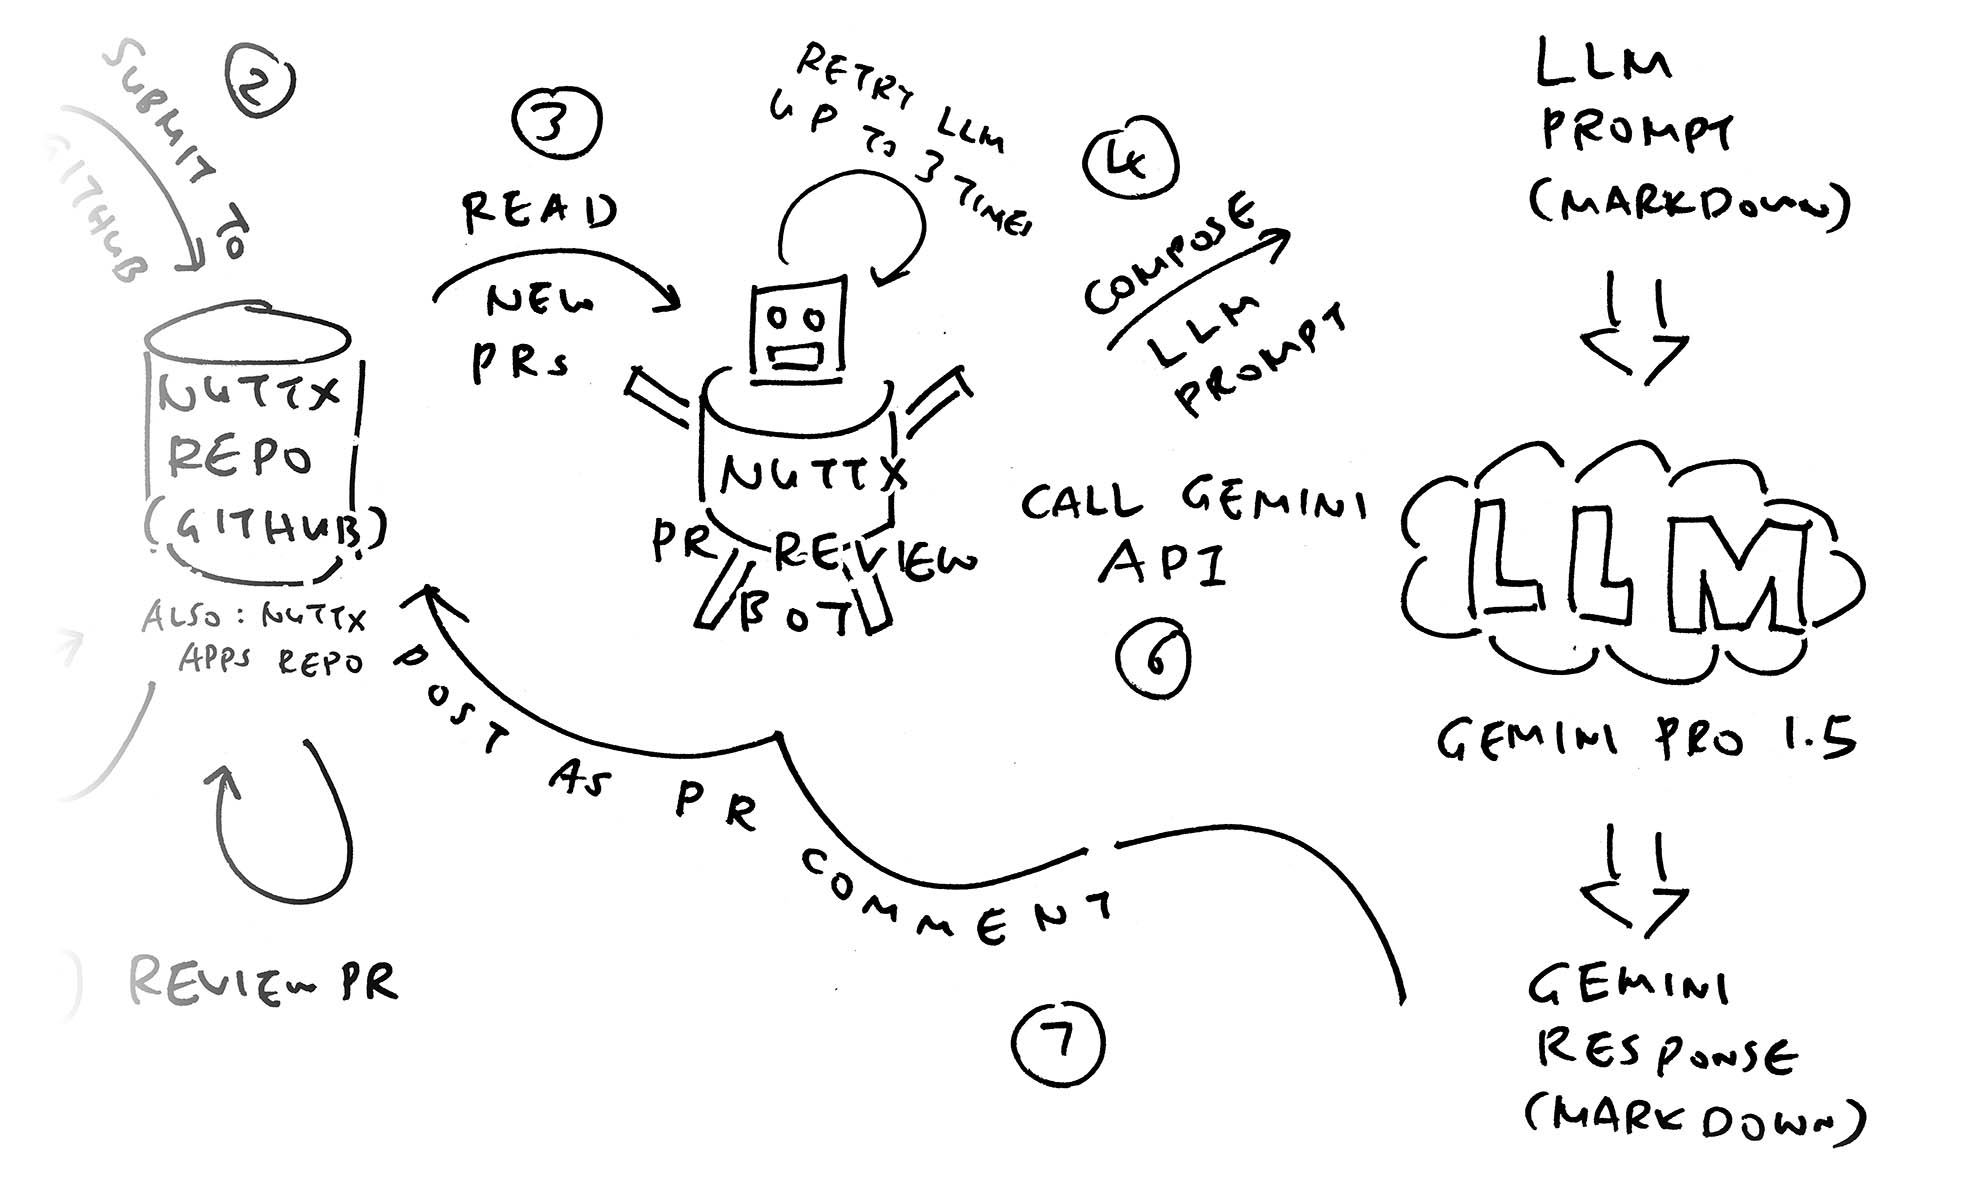 SUBMIT TO
GITHUB
2
3
READ
NEW
PRs
RETRY LLM
UP TO 3 TIMES
4
COMPOSE
LLM
PROMPT
LLM
PROMPT
(MARKDOWN)
NUTTX
REPO
(GITHUB)
ALSO: NUTTX
APPS REPO
NUTTX
PR REVIEW
BOT
CALL GEMINI
API
6
LLM
GEMINI PRO 1.5
POST AS PR COMMENT
7
REVIEW PR
GEMINI
RESPONSE
(MARKDOWN)